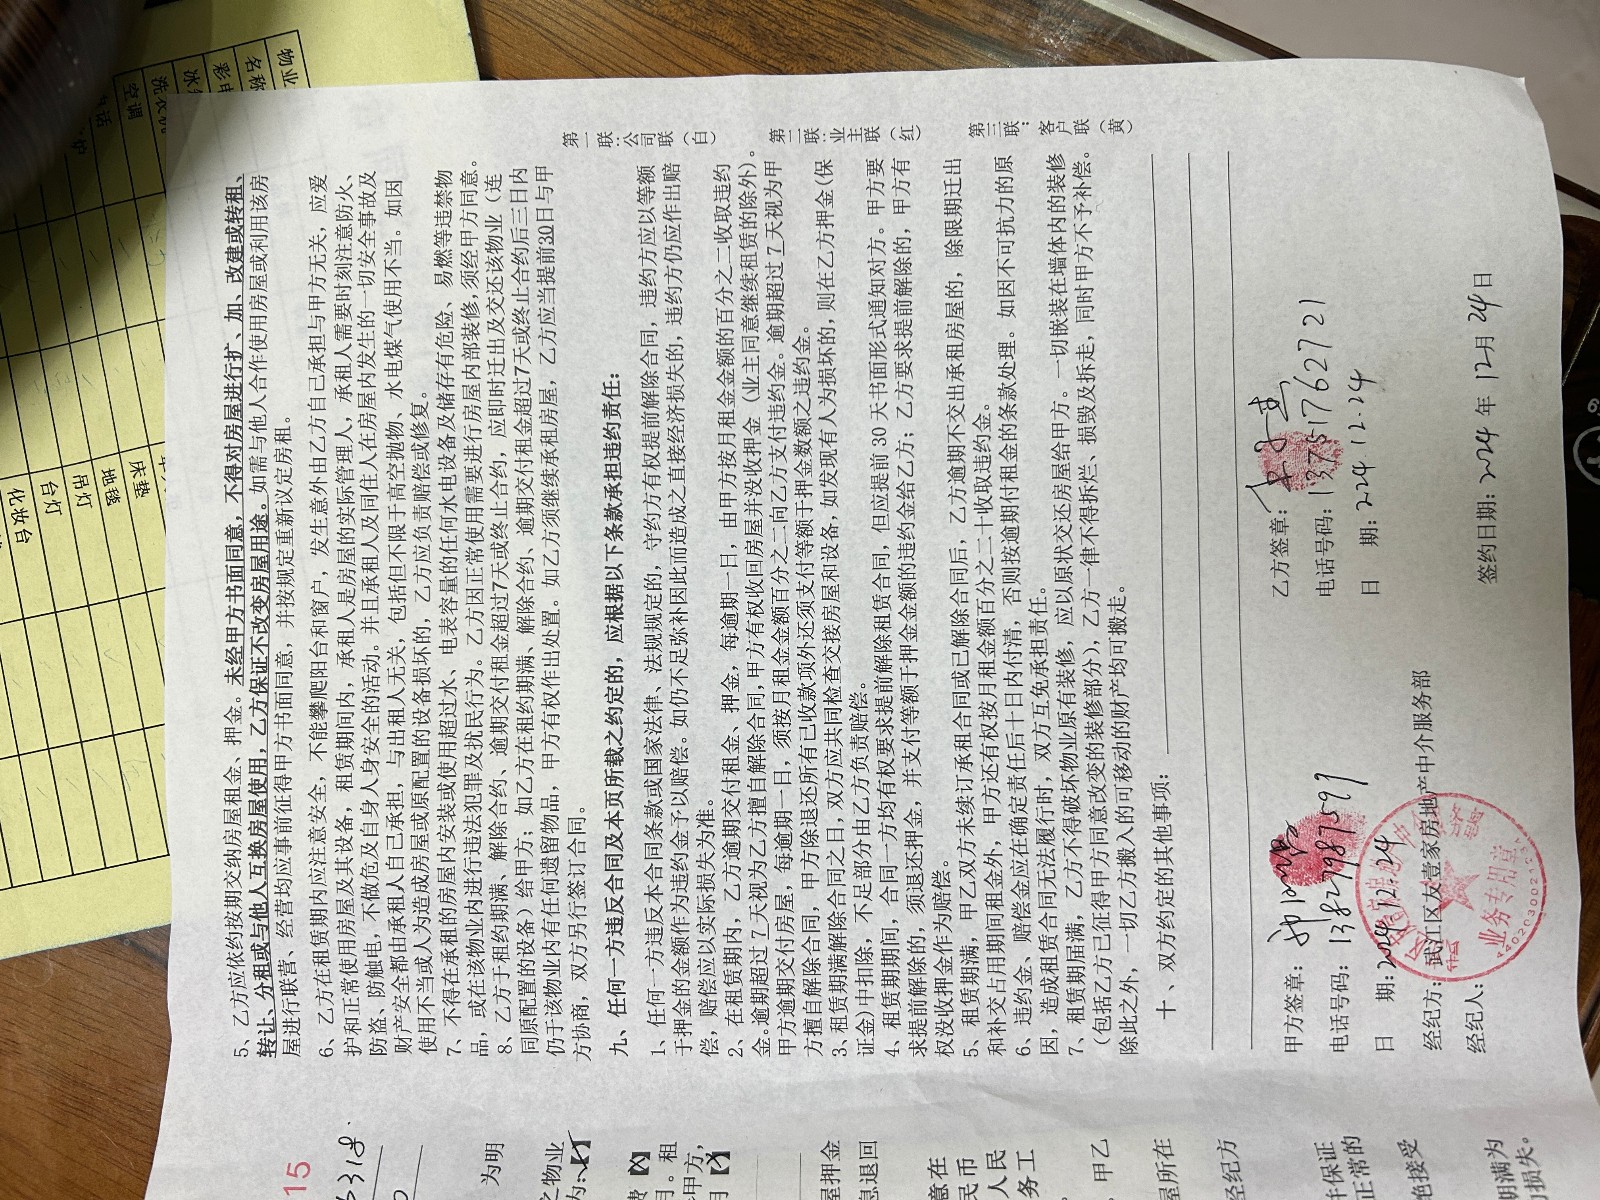 5、乙方应依约按期交纳房屋租金、押金。未经甲方书面同意，不得对房屋进行扩、加、改建或转租、
转让、分租或与他人互换房屋使用，乙方保证不改变房屋用途。如需与他人合作使用房屋或利用该房
屋进行联营、经营均应事前征得甲方书面同意，并按规定重新议定房租。
6、乙方在租赁期内应注意安全，不能攀爬阳台和窗户，发生意外由乙方自己承担与甲方无关，应爱
护和正常使用房屋及其设备，租赁期间内，承租人是房屋的实际管理人，承租人需要时刻注意防火、
防盗、防触电，不做危及自身人身安全的活动。并且承租人及同住人在房屋内发生的一切安全事故及
财产安全都由承租人自己承担，与出租人无关，包括但不限于高空抛物、水电煤气使用不当。如因
使用不当或人为造成房屋或原配置的设备损坏的，乙方应负责赔偿或修复。
7、不得在承租的房屋内安装或使用超过水、电表容量的任何水电设备及储存有危险、易燃等违禁物
品，或在该物业内进行违法犯罪及扰民行为。乙方因正常使用需要进行房屋内部装修，须经甲方同意。
8、乙方于租约期满、解除合约、逾期交付租金超过7天或终止合约，应即时迁出及交还该物业（连
同原配置的设备）给甲方；如乙方在租约期满、解除合约、逾期交付租金超过7天或终止合约后三日内
仍于该物业内有任何遗留物品，甲方有权作出处置。如乙方须继续承租房屋，乙方应当提前30日与甲
方协商，双方另行签订合同。
九、任何一方违反合同及本页所载之约定的，应根据以下条款承担违约责任：
1、任何一方违反本合同条款或国家法律、法规规定的，守约方有权提前解除合同，违约方应以等额
于押金的金额作为违约金予以赔偿。如仍不足弥补因此而造成之直接经济损失的，违约方仍应作出赔
偿，赔偿应以实际损失为准。
2、在租赁期内，乙方逾期交付租金、押金，每逾期一日，由甲方按月租金金额的百分之二收取违约
金。逾期超过7天视为乙方擅自解除合同，甲方有权收回房屋并没收押金（业主同意继续租赁的除外）。
甲方逾期交付房屋，每逾期一日，须按月租金金额百分之二向乙方支付违约金。逾期超过7天视为甲
方擅自解除合同，甲方除退还所有已收款项外还须支付等额于押金数额之违约金。
3、租赁期满解除合同之日，双方应共同检查交接房屋和设备，如发现有人为损坏的，则在乙方押金(保
证金)中扣除，不足部分由乙方负责赔偿。
4、租赁期期间，合同一方均有权要求提前解除租赁合同，但应提前30天书面形式通知对方。甲方要
求提前解除的，须退还押金，并支付等额于押金金额的违约金给乙方；乙方要求提前解除的，甲方有
权没收押金作为赔偿。
5、租赁期满，甲乙双方未续订承租合同或已解除合同后，乙方逾期不交出承租房屋的，除限期迁出
和补交占用期间租金外，甲方还有权按月租金额百分之二十收取违约金。
6、违约金、赔偿金应在确定责任后十日内付清，否则按逾期付租金的条款处理。如因不可抗力的原
因，造成租赁合同无法履行时，双方互免承担责任。
7、租赁期届满，乙方不得破坏物业原有装修，应以原状交还房屋给甲方。一切嵌装在墙体内的装修
（包括乙方已征得甲方同意改变的装修部分），乙方一律不得拆烂、损毁及拆走，同时甲方不予补偿。
除此之外，一切乙方搬入的可移动的财产均可搬走。
十、双方约定的其他事项：
甲方签章：
电话号码：13829987597
日 期：2024.12.24
经纪方：武江区友壹家房地产中介服务部
经纪人：
业务专用章
乙方签章：
电话号码：13751762721
日 期：224.12.24
签约日期：2024 年 12月 24日
第一联：公司联（白）
第二联：业主联（红）
第三联：客户联（黄）
15
6318
为明
之物业
屋押金
息退回
意在
民币
人民
务工
甲乙
屋所在
经纪方
并保证
正常的
绝接受
期满为
损失。
物业
名称
空调
床垫
地毯
吊灯
台灯
化妆台